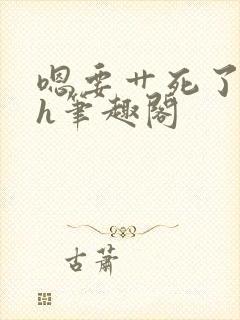 嗯要艹死了
h笔趣阁
古萧